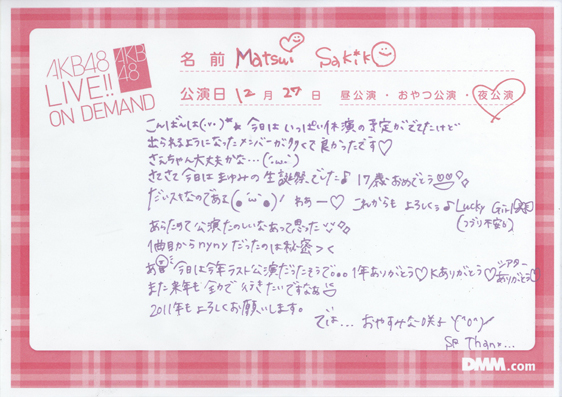 AKB48
LIVE!!
ON DEMAND
AKB
48
名前 Matsui Sakiko
公演日 12月27日 昼公演・おやつ公演・夜公演
こんばんは(・v・)** 今日はいっぱい休演の予定がでてたけど
出られるようになったメンバーが多くて良かったです♡
さえちゃん大丈夫かな…(´・ω・`)
さてさて今日はまゆみの生誕祭でした♪ 17歳おめでとう
だいスキなのであぁ(。´ω`。) わぁー♡ これからもよろしくぅ♪ Lucky Girl
(コブリ不安る)
あらためて公演たのしいなあって思った
1曲目からnynyだったのは秘密> <
あ 今日は今年ラスト公演だったそうで。。。1年ありがとう♡Kありがとう♡シアターありがとう♡
また来年も全力で行きたいですなあ
2011年もよろしくお願いします。
では…おやすみな咲子 \(^o^)/
So Thanx...
DMM.com